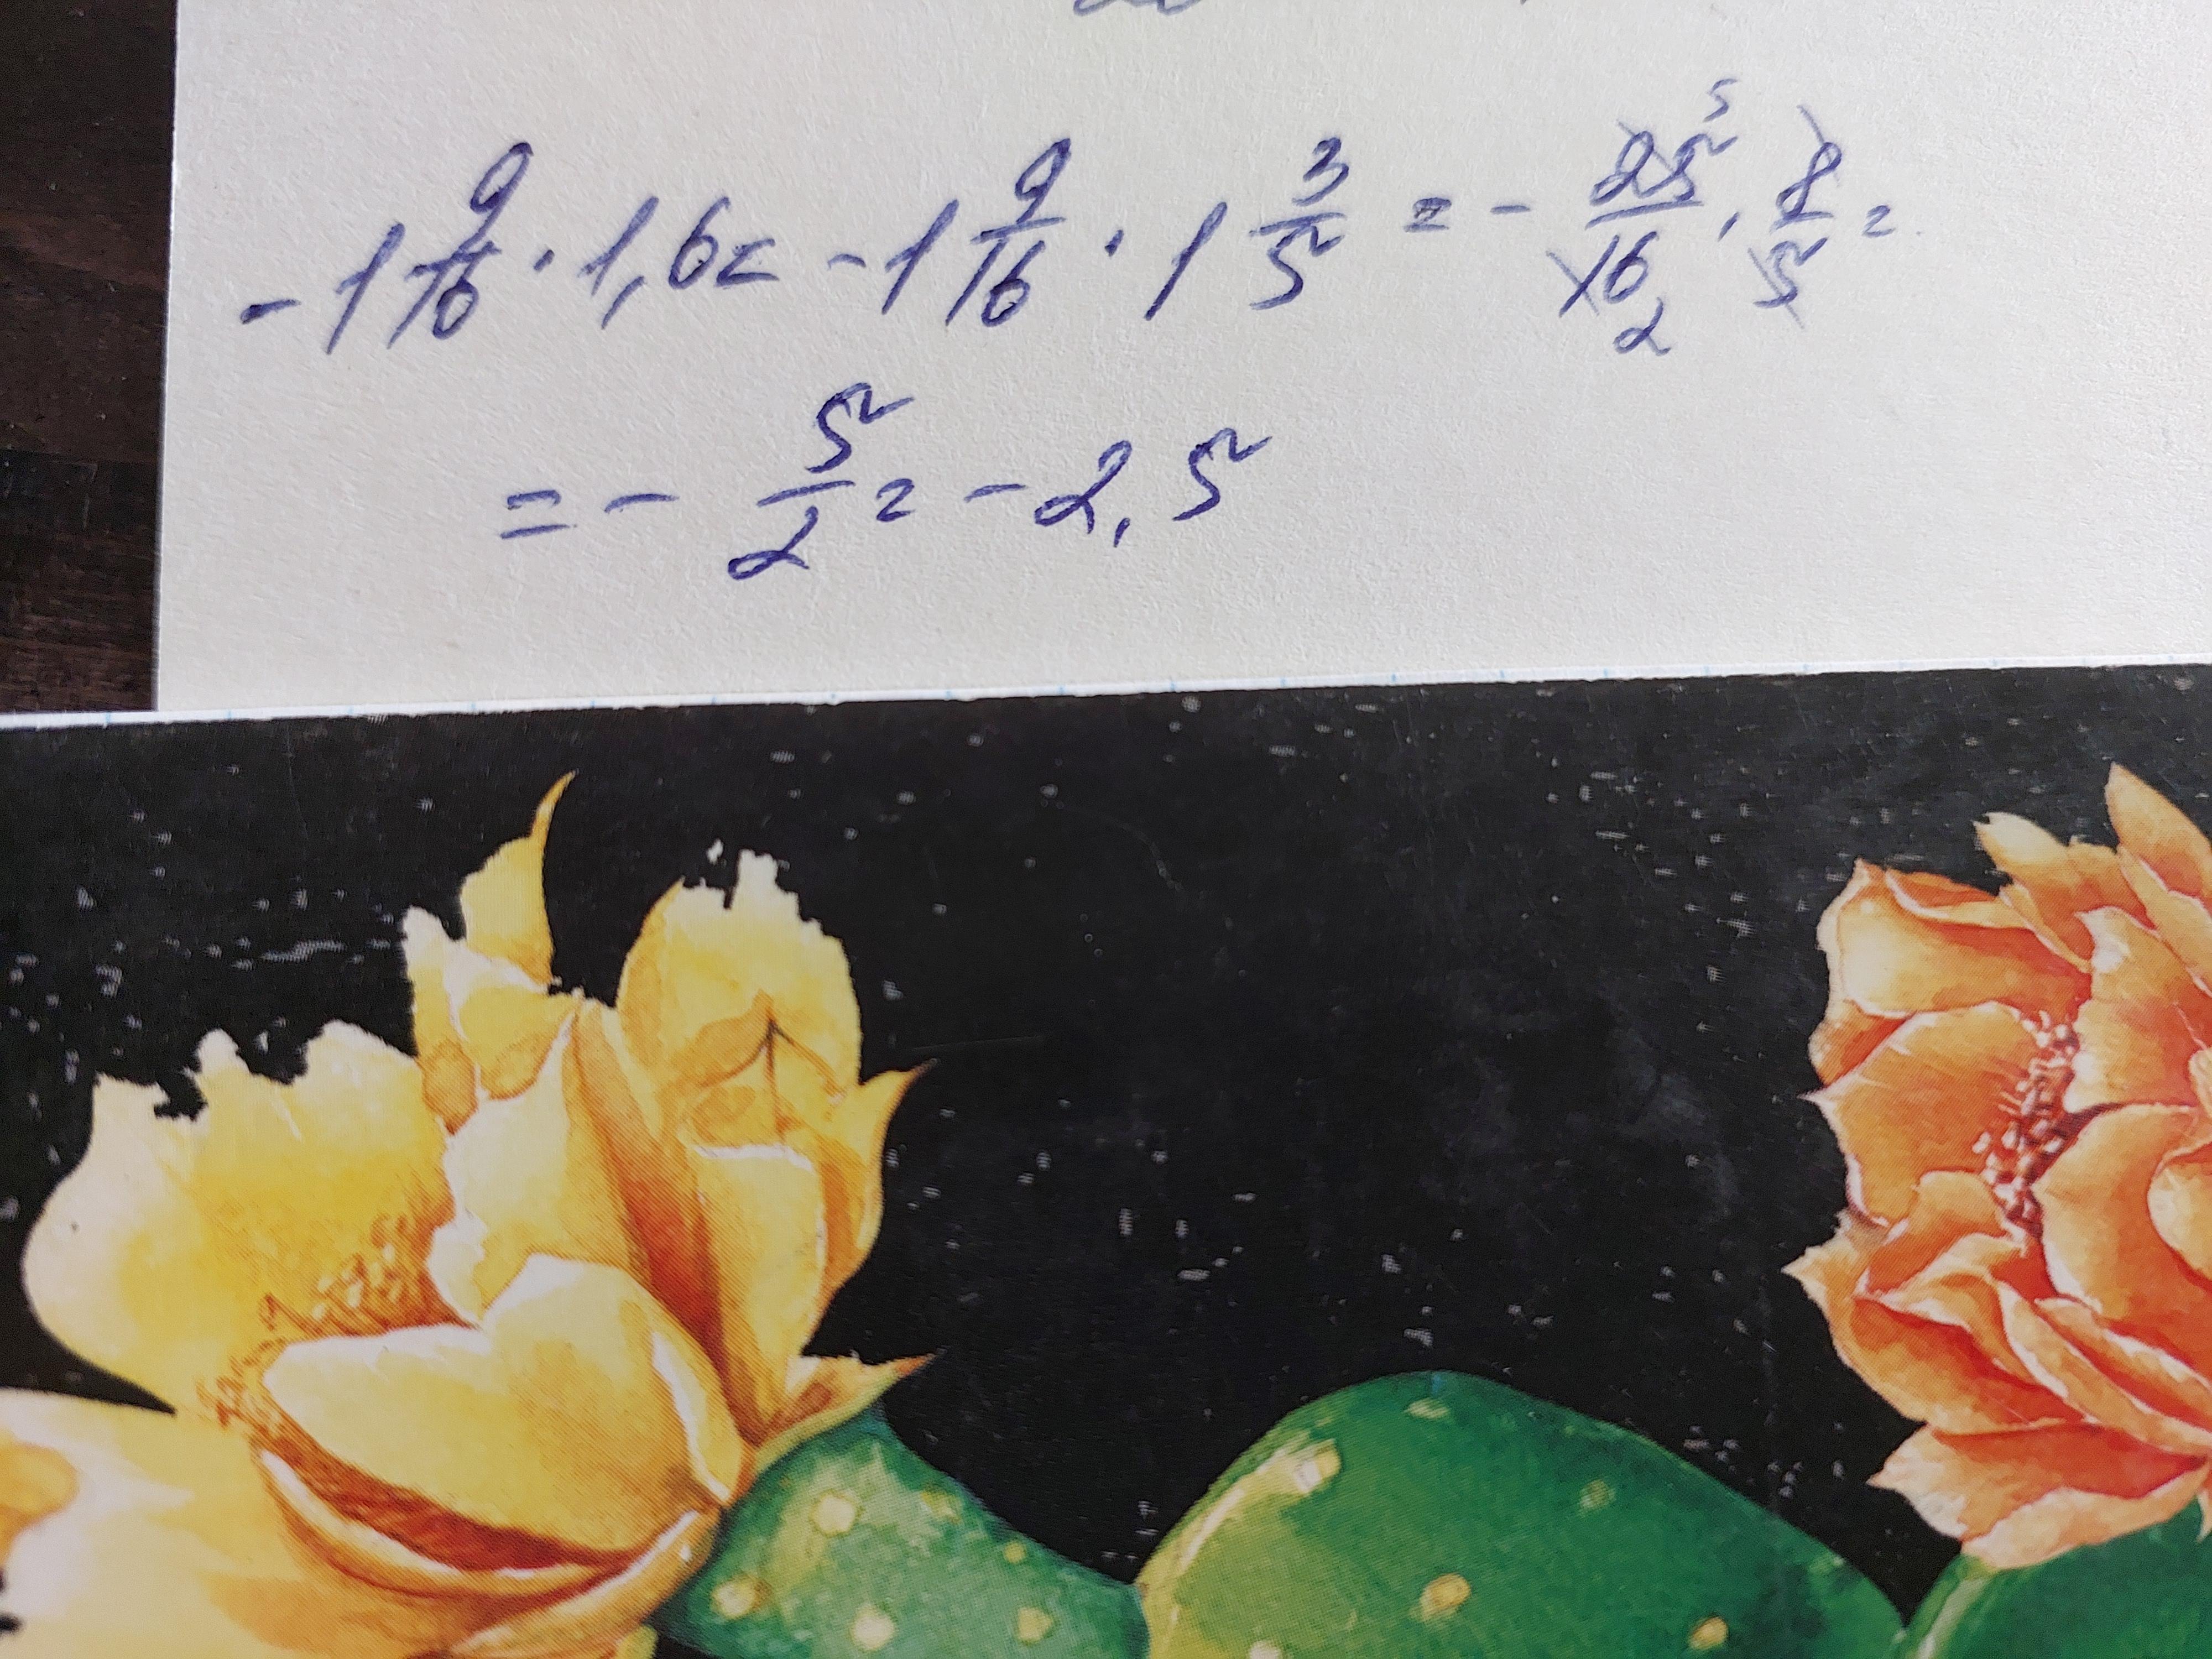 -1 9/16 · 1,6 = -1 9/16 · 1 3/5 = - 25 5/16 2 · 8/5 =
= - 5/2 = - 2,5